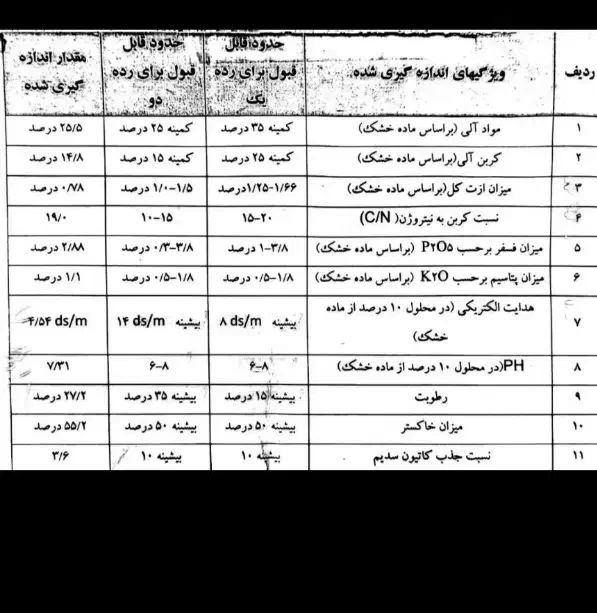 ردیف ویژگیهای اندازه گیری شده حدود قابل قبول برای رده یک حدود قابل قبول برای رده دو مقدار اندازه گیری شده
۱ مواد آلی (براساس ماده خشک) کمینه ۳۵ درصد کمینه ۲۵ درصد ۲۵/۵ درصد
۲ کربن آلی(براساس ماده خشک) کمینه ۲۵ درصد کمینه ۱۵ درصد ۱۴/۸ درصد
۳ میزان ازت کل(براساس ماده خشک) ۱/۲۵-۱/۶۶درصد ۱/۰-۱/۵ درصد ۰/۷۸ درصد
۴ نسبت کربن به نیتروژن( C/N) ۱۵-۲۰ ۱۰-۱۵ ۱۹/۰
۵ میزان فسفر برحسب P۲O۵ (براساس ماده خشک) ۱-۳/۸ درصد ۰/۳-۳/۸ درصد ۲/۸۸ درصد
۶ میزان پتاسیم برحسب K۲O (براساس ماده خشک) ۰/۵-۱/۸ درصد ۰/۵-۱/۸ درصد ۱/۱ درصد
۷ هدایت الکتریکی (در محلول ۱۰ درصد از ماده خشک) بیشینه ۸ ds/m بیشینه ۱۴ ds/m ۴/۵۴ ds/m
۸ PH(در محلول ۱۰ درصد از ماده خشک) ۶-۸ ۶-۸ ۷/۳۱
۹ رطوبت بیشینه ۱۵ درصد بیشینه ۳۵ درصد ۲۷/۲ درصد
۱۰ میزان خاکستر بیشینه ۵۰ درصد بیشینه ۵۰ درصد ۵۵/۲ درصد
۱۱ نسبت جذب کاتیون سدیم بیشینه ۱۰ بیشینه ۱۰ ۳/۶